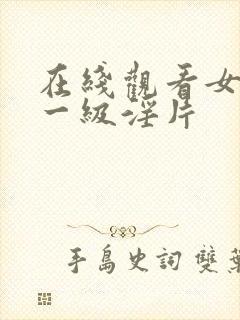 在綫觀看女
一級淫片
手島史詞 雙葉